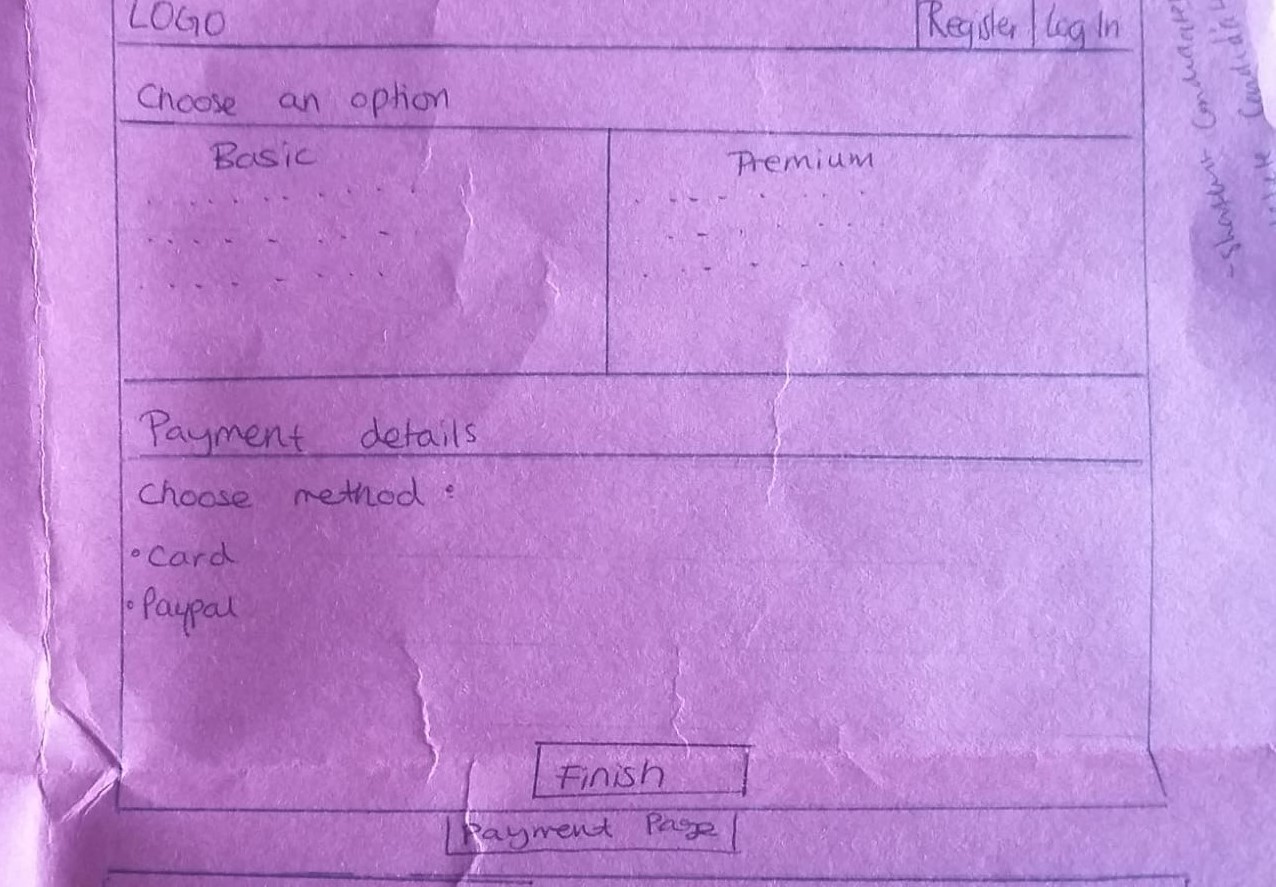 LOGO
Register | Log In
Choose an option
Basic
Premium
Payment details
Choose method :
• Card
• Paypal
Finish
Payment Page